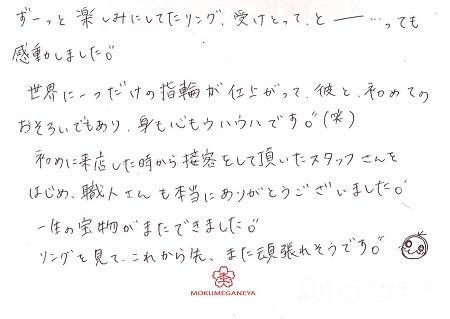 ずーっと楽しみにしてたリング、受けとって、と――…っても
感動しました。
世界に一つだけの指輪が仕上がって、彼と、初めての
おそろいでもあり、身も心もウハウハです。(笑)
初めに来店した時から接客をして頂いたスタッフさんを
はじめ、職人さんも本当にありがとうございました。
一生の宝物がまたできました。
リングを見て、これから先、また頑張れそうです。
MOKUMEGANEYA